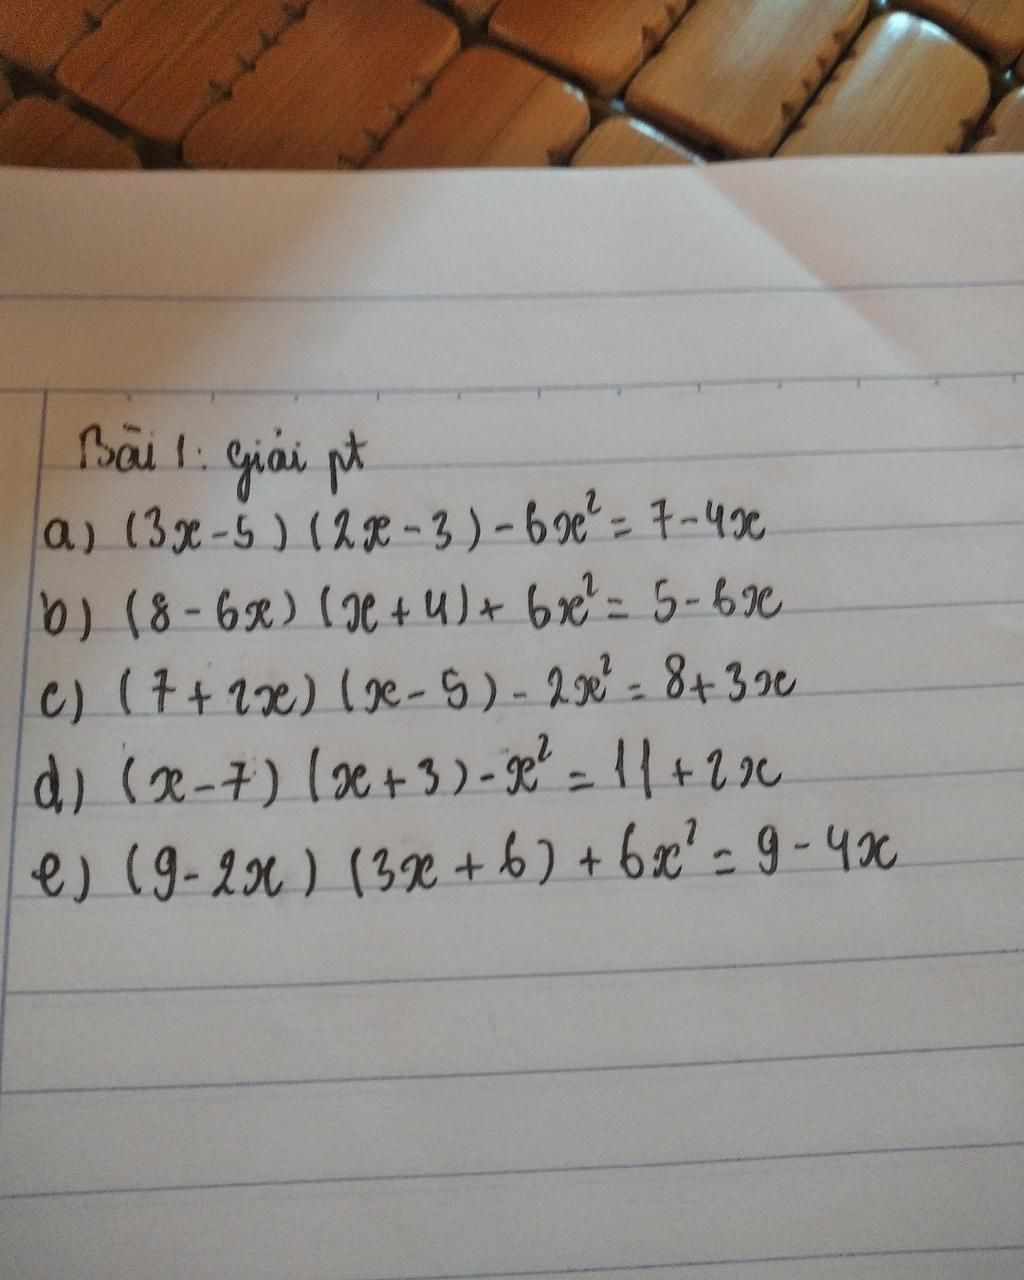 Bài 1: giải pt
a) (3x-5)(2x-3)-6x²=7-4x
b) (8-6x)(x+4)+6x²=5-6x
c) (7+2x)(x-5)-2x²=8+3x
d) (x-7)(x+3)-x²=11+2x
e) (9-2x)(3x+6)+6x²=9-4x